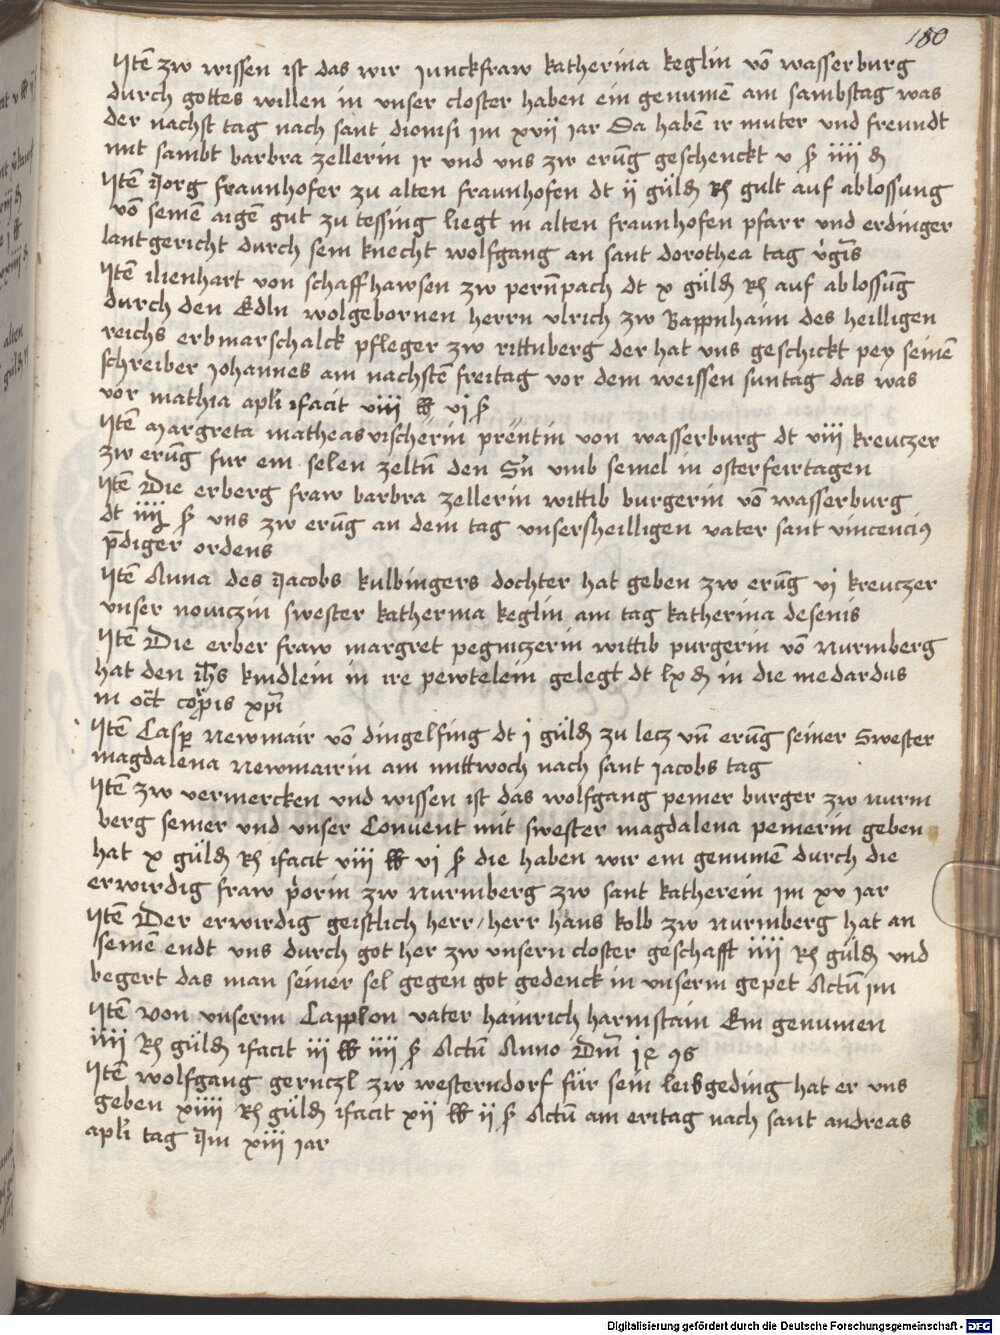 180
Itē zw wissen ist das wir junckfraw katherina keglin vō wasserburg
durch gottes willen in vnser closter haben ein genumē am sambstag was
der nachst tag nach sant dionisi im xvij iar Da habē ir muter vnd freundt
mit sambt barbra zellerin ir vnd vns zw erūg geschenckt v ß iiij d
Itē Jorg fraunhofer zu alten fraunhofen dt ij güld Rh gult auf ablossung
vō seinē aigē gut zu tessing liegt in alten fraunhofen pfarr vnd erdinger
lantgericht durch sein knecht wolfgang an sant dorothea tag v̓gīs
Itē lienhart von schaffhawsen zw pern̄pach dt x güld Rh auf ablossūg
durch den Edln wolgebornen herrn vlrich zw Bappnhaim des heilligen
reichs erbmarschalck pfleger zw rittnberg der hat vns geschickt pey seinē
schreiber Johannes am nachstē freitag vor dem weissen suntag das was
vor mathia apl̄i ifacit viij ℔ vj ß
Itē Margreta matheasvischerin prëntin von wasserburg dt viij kreuczer
zw erūg fur ein selen zeltn̄ den Sr̄n vmb semel in osterfeirtagen
Itē Die erberg fraw barbra zellerin wittib burgerin vō wasserburg
dt iiij ß vns zw erūg an dem tag vnsersheilligen vater sant vincencius
p̄diger ordens
Itē Anna des Jacobs kulbingers dochter hat geben zw erūg vj kreuczer
vnser noviczin swester katherina keglin am tag katherina desenis
Itē Die erber fraw margret pegniczerin wittib purgerin vō Nurmberg
hat den ih̄s kindlein in ire pewtelein gelegt dt lx d in die medardus
in oct̄ corp̄is xp̄i
Itē Casp̄ Newmair vō dingelfing dt j güld zu lecz vn̄ erūg seiner Swester
magdalena Newmairin am mittwoch nach sant Jacobs tag
Itē zw vermercken vnd wissen ist das wolfgang pemer burger zw nurm
berg seiner vnd vnser Convent mit swester magdalena pemerin geben
hat x güld Rh ifacit viij ℔ vj ß die haben wir ein genumē durch die
erwirdig fraw p̓orin zw Nurmberg zw sant katherein im xv iar
Itē Der erwirdig geistlich herr / herr hans kolb zw nurmberg hat an
seinē endt vns durch got her zw vnsern closter geschafft iiij Rh güld vnd
begert das man seiner sel gegen got gedenck in vnserm gepet Actū im
Itē von vnserm Capplon vater hainrich harmstain Ein genumen
iiij Rh güld ifacit iij ℔ iiij ß Actū Anno Dm̄
Itē wolfgang gernczl zw westerndorf für sein leibgeding hat er vns
geben xiiij Rh güld ifacit xij ℔ ij ß Actū am eritag nach sant andreas
apl̄i tag Im xiij iar
Digitalisierung gefördert durch die Deutsche Forschungsgemeinschaft - DFG